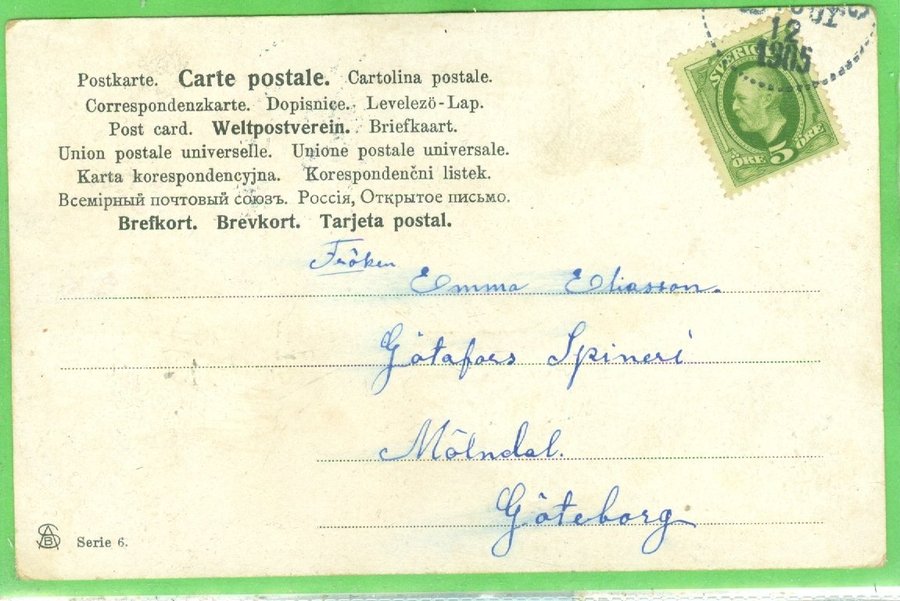 Postkarte. Carte postale. Cartolina postale.
Correspondenzkarte. Dopisnice. Levelezö-Lap.
Post card. Weltpostverein. Briefkaart.
Union postale universelle. Unione postale universale.
Karta korespondencyjna. Korespondenčni listek.
Всемірный почтовый союзъ. Россія, Открытое письмо.
Brefkort. Brevkort. Tarjeta postal.
12
1905
SVERIGE
5
ÖRE ÖRE
Fröken
Emma Eliasson.
Götafors Spineri
Mölndal.
Göteborg
Serie 6.